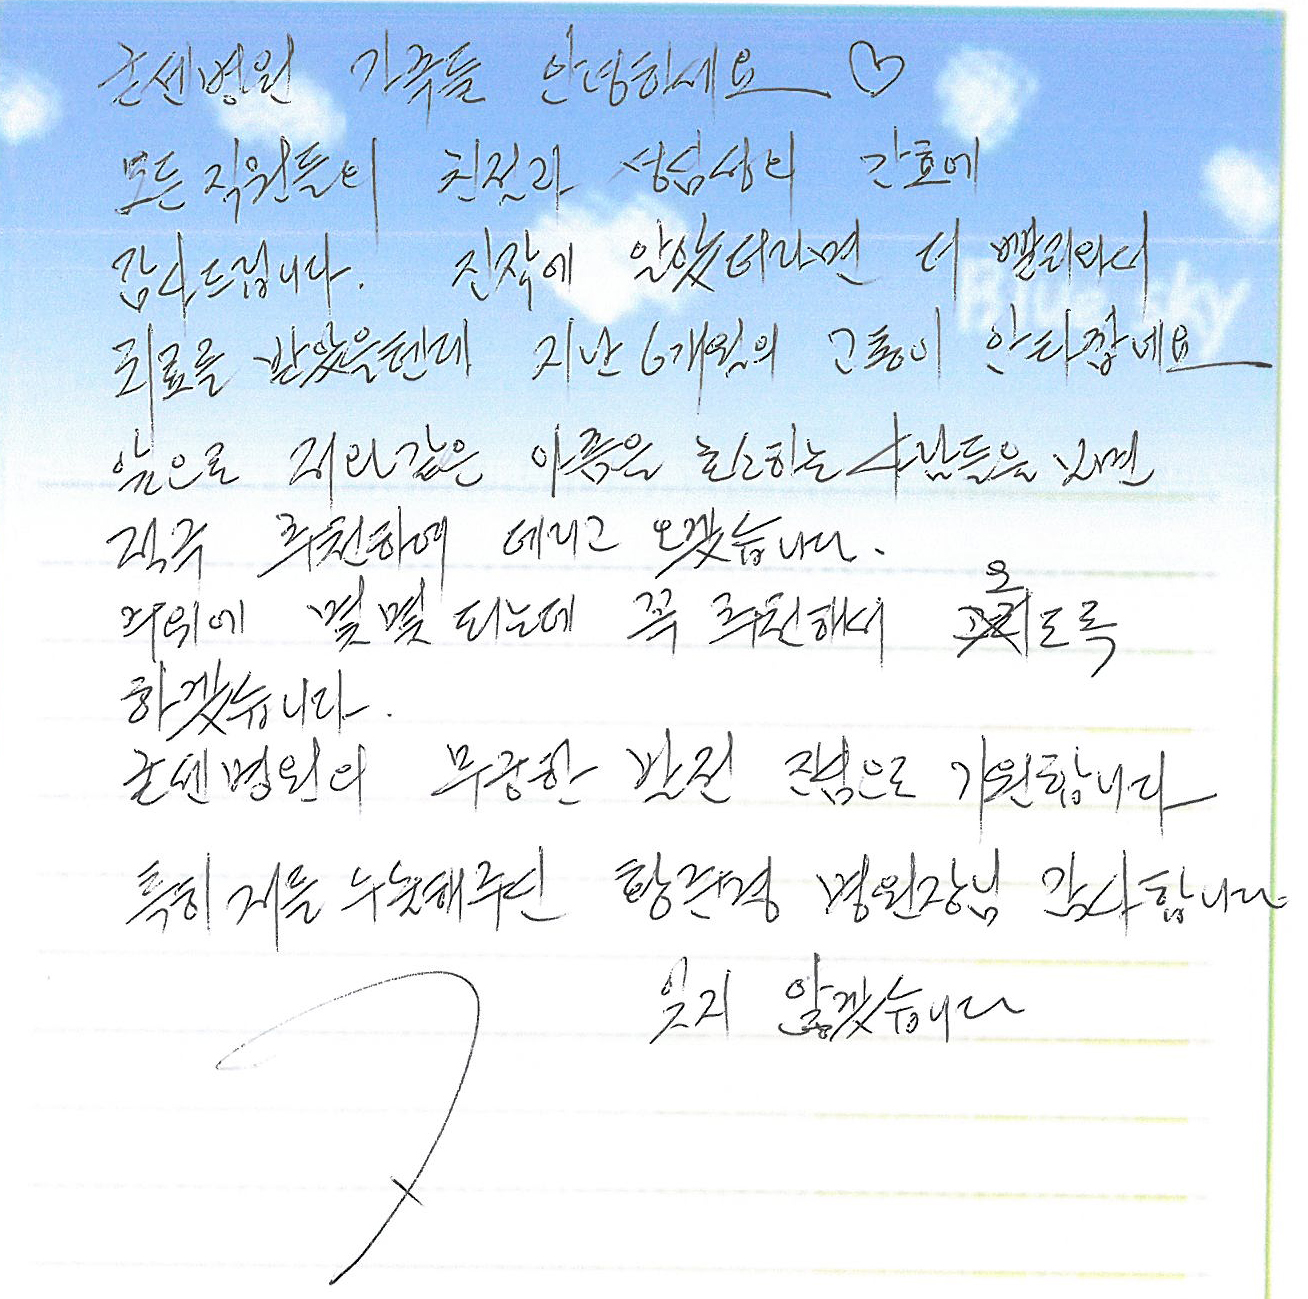 굳센병원 가족들 안녕하세요 ♡
모든 직원들의 친절과 성심성의 간호에
감사드립니다. 진작에 알았더라면 더 빨리와서
Blue sky
치료를 받았을텐데 지난 6개월의 고통이 안타깝네요
앞으로 저와같은 아픔을 호소하는 사람들을 보면
적극 추천하여 데리고 오겠습니다.
주위에 몇몇 되는데 꼭 추천해서 오도록
하겠습니다.
굳센병원의 무궁한 발전 진심으로 기원합니다
특히 저를 수술해주신 병원장님 감사합니다
잊지 않겠습니다